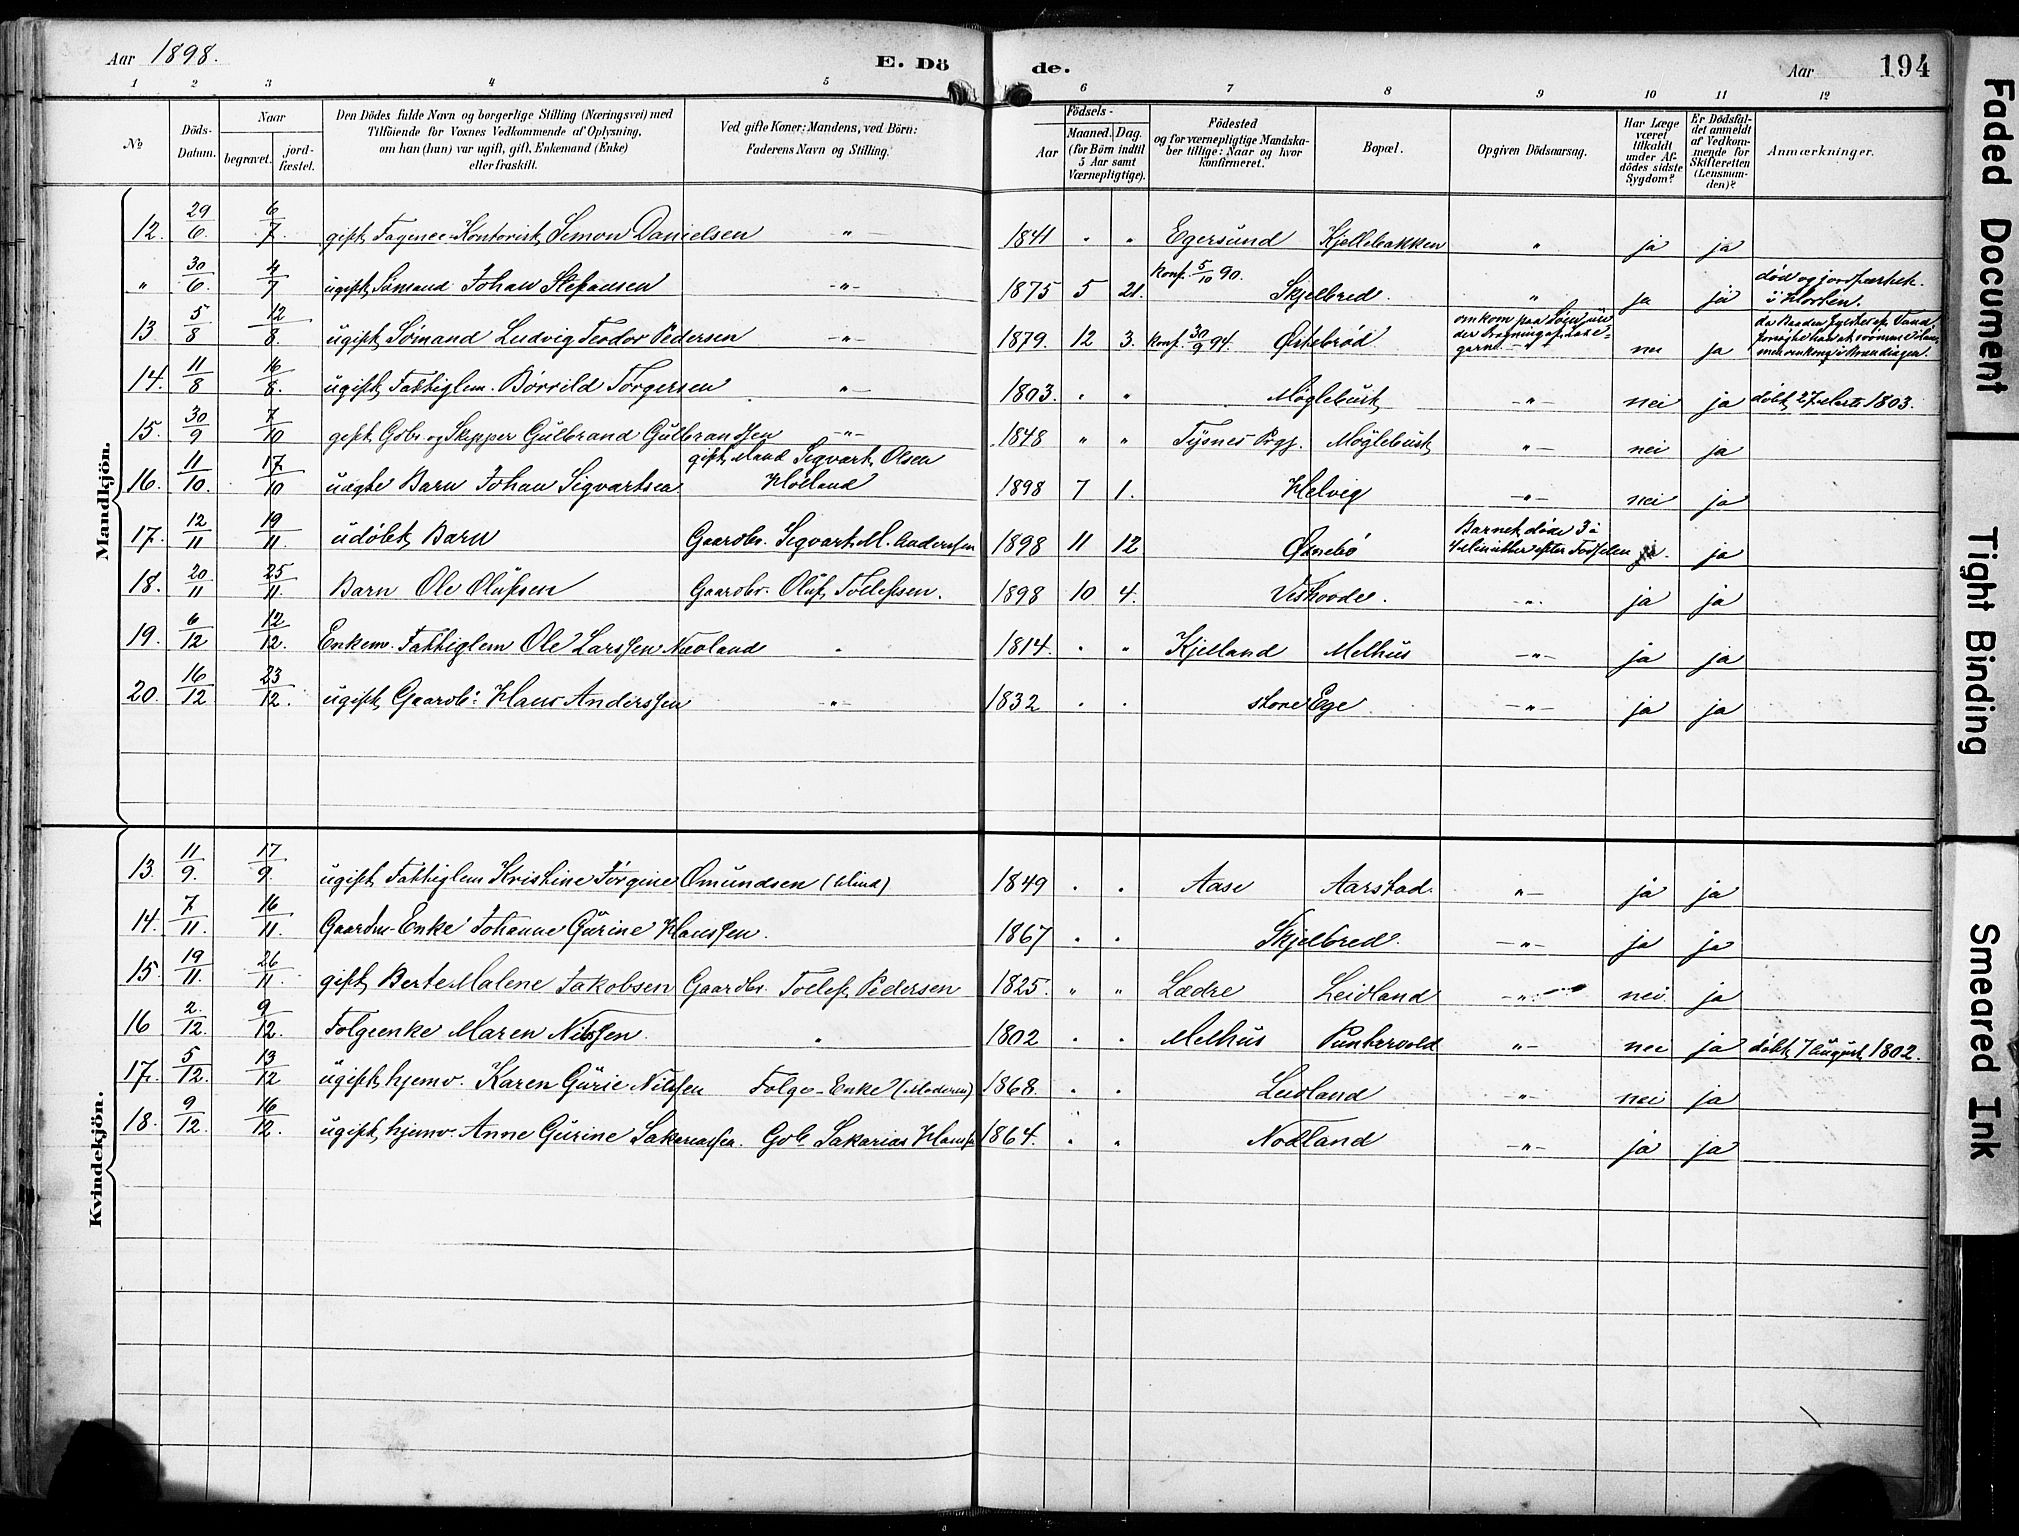 Aar 1898.
E. Dö de.
Aar 194
1 2 3 4 5 6 7 8 9 10 11 12
№
Döds-Datum.
Naar
begravet.
jord-fæstet.
Den Dödes fulde Navn og borgerlige Stilling (Næringsvei) med
Tilföiende for Voxnes Vedkommende af Oplysning,
om han (hun) var ugift, gift, Enkemand (Enke)
eller fraskilt.
Ved gifte Koner: Mandens, ved Börn:
Faderens Navn og Stilling.
Födsels-
Aar
Maaned. Dag.
(for Börn indtil
5 Aar samt
Værnepligtige).
Födested
og for værnepligtige Mandska-
ber tillige: Naar og hvor
konfirmeret.
Bopæl.
Opgiven Dödsaarsag.
Har Læge
været
tilkaldt
under Af-
dödes sidste
Sygdom?
Er Dödsfal-
det anmeldt
af Vedkom-
mende for
Skifteretten
(Lensman-
den)?
Anmærkninger.
Mandkjön.
12. 29/6. 6/7. gift Fayance-Kontorist Simon Danielsen " 1841 " " Egersund Kjellebakken " ja ja
" 30/6. 4/7 ugift Sømand Johan Stefansen -"- 1875 5 21. Konf. 5/10 90. Skjelbred. " ja ja død og jordfæstet i Horten.
13. 5/8 12/8. ugift Sømand Ludvig Teodor Pedersen -"- 1879. 12 3. Konf. 30/9 94. Østebrød omkom paa Søen garn. nei ja
14. 11/8 16/8. ugift Fattiglem. Børrild Torgersen " 1803. " " Møglebust -"- nei ja døbt 27 Marts 1803.
15. 30/9 7/10 gift Gbr. og Skipper Gulbrand Gulbrandsen -"- 1848 " " Tysnes Prgj. Møglebust -"- nei ja
16. 11/10. 17/10 uægte Barn Johan Sigvartsen gift Mand Sigvart Olsen Hølland 1898 7 1. Helvig -"- nei ja
17. 12/11 19/11. udøbt Barn Gaardbr. Sigvart M. Anderssen 1898 11 12 Øsnebø Barnet døde 3 à 4 Minutter efter Fødselen ja. ja
18. 20/11 25/11. Barn Ole Olufsen Gaardbr. Oluf Tollefsen. 1898 10 4. Veshovde. " ja ja
19. 6/12 12/12. Enkem. Fattiglem Ole Larssen Nodland " 1814. " " Kjelland Melhus -"- ja ja
20. 16/12 23/12. ugift Gaardb: Hans Anderssen -"- 1832 " " store Ege -"- ja ja
Kvindekjön.
13. 11/9. 17/9. ugift Fattiglem Kristine Jørgine Omundsen (blind) 1849 " " Aase Aarstad. " ja ja
14. 7/11. 16/11. Gaardm. Enke Johanne Gurine Hanssen. 1867 " " Skjelbred. -"- ja ja
15. 19/11. 26/11. gift Berte Malene Jakobsen Gaardbr. Tollef Pedersen 1825. " " Lædre Leidland -"- nei. ja
16 2./12. 9/12. Folgeenke Maren Nilssen. " 1802 " " Melhus Puntervold -"- nei ja døbt 7 August 1802.
17. 5/12. 13/12 ugift hjemv. Karen Gurie Nilssen Folge-Enke (Moderen) 1868. " " Leidland " nei ja
18. 9/12. 16/12. ugift hjemv. Anne Gurine Sakariassen. Gb. Sakarias Hanss. 1864. " " Nodland -"- ja ja
Faded Document
Tight Binding
Smeared Ink